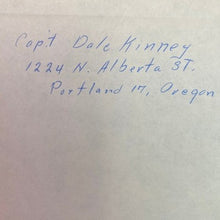 Cap't Dale Kinney
1224 N. Alberta ST.
Portland 17, Oregon